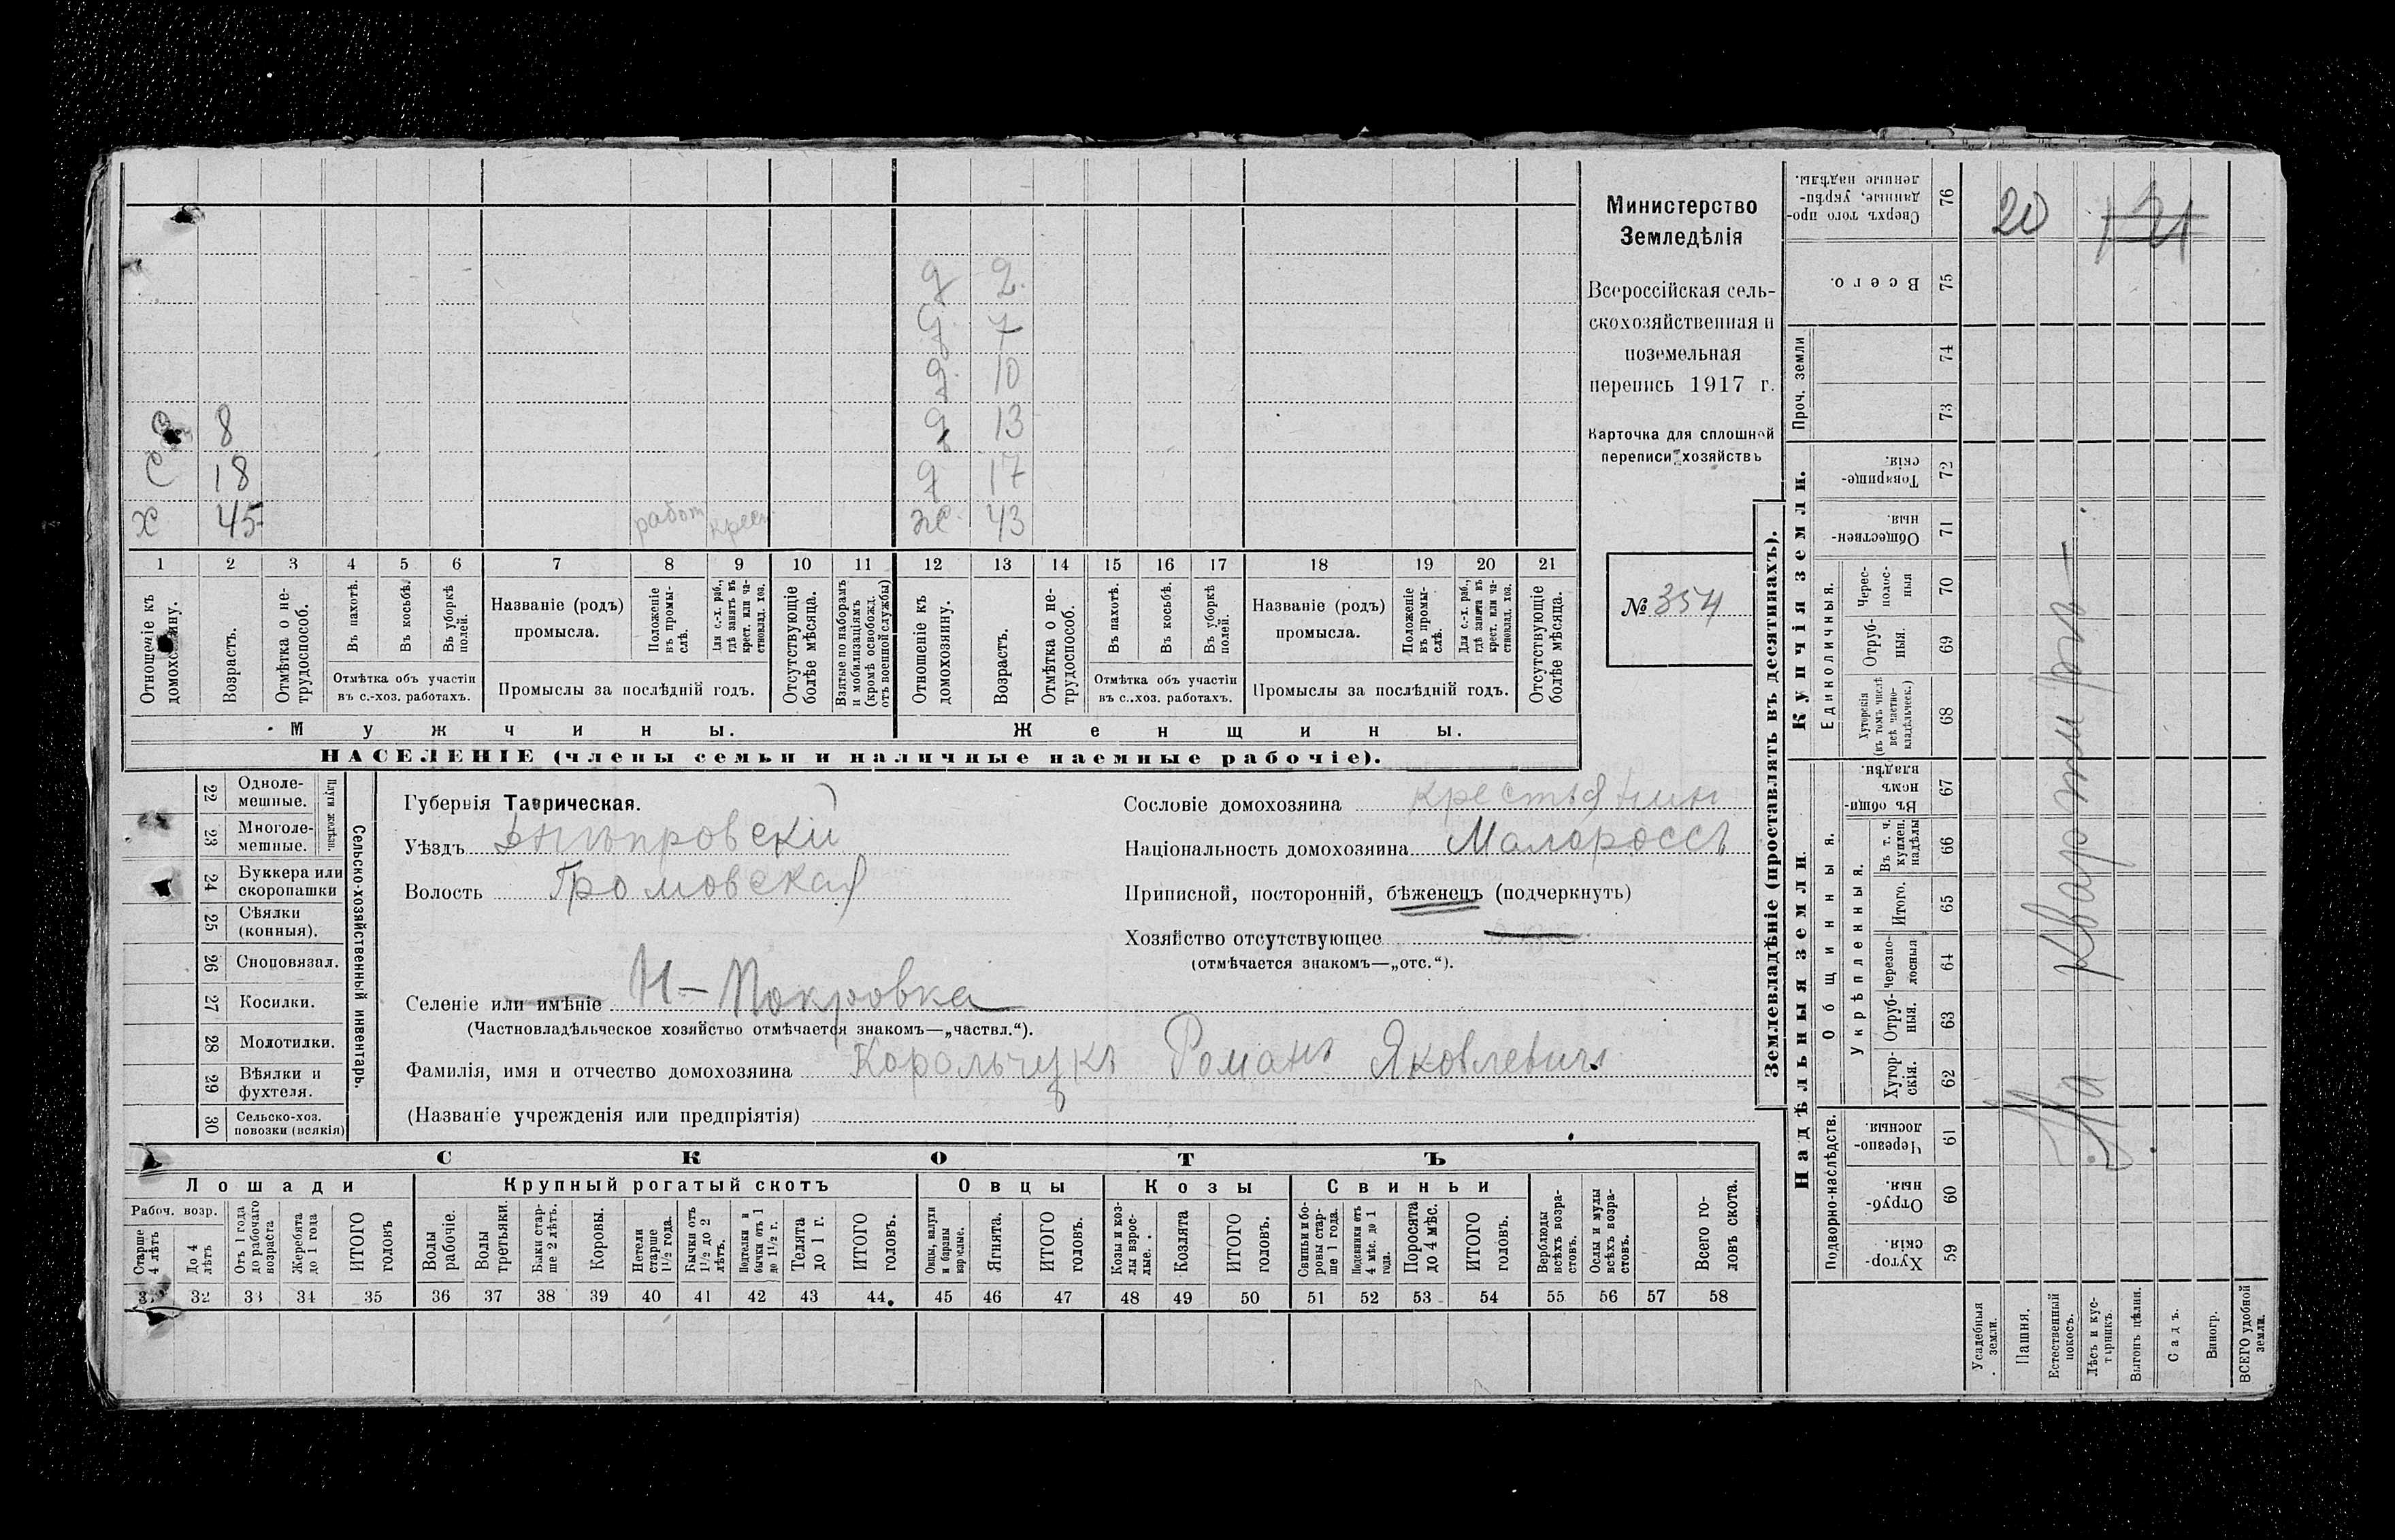 Министерство
Земледѣлія
Всероссійская сель-
скохозяйственная и
поземельная
перепись 1917 г.
Карточка для сплошной
переписи хозяйствъ
№ 354
д 2
д 7
д 10
С 8 д 13
С 18 д 17
Х 45 работ крест ж 43
1 2 3 4 5 6 7 8 9 10 11 12 13 14 15 16 17 18 19 20 21
Отношеніе къ домохозяину.
Возрастъ.
Отмѣтка о не-
трудоспособ.
Въ пахотѣ.
Въ косьбѣ.
Въ уборкѣ
полей.
Отмѣтка объ участіи
въ с.-хоз. работахъ.
Названіе (родъ)
промысла.
Положеніе
въ промы-
слѣ.
Для с.-х. раб.,
гдѣ занятъ въ
крест. или ча-
стновлад. хоз.
Промыслы за послѣдній годъ.
Отсутствующіе
болѣе мѣсяца.
Взятые по наборамъ
и мобилизаціямъ
(кромѣ освобожд.
отъ военной службы)
Отношеніе къ
домохозяину.
Возрастъ.
Отмѣтка о не-
трудоспособ.
Въ пахотѣ.
Въ косьбѣ.
Въ уборкѣ
полей.
Отмѣтка объ участіи
въ с.-хоз. работахъ.
Названіе (родъ)
промысла.
Положеніе
въ промы-
слѣ.
Для с.-х. раб.,
гдѣ занята въ
крест. или ча-
стновлад. хоз.
Промыслы за послѣдній годъ.
Отсутствующіе
болѣе мѣсяца.
Мужчины.
Женщины.
НАСЕЛЕНІЕ (члены семьи и наличные наемные рабочіе).
22 Одноле-
мешные.
23 Многоле-
мешные.
Плуги желѣзн.
24 Буккера или
скоропашки
25 Сѣялки
(конныя).
26 Сноповязал.
27 Косилки.
28 Молотилки.
29 Вѣялки и
фухтеля.
30 Сельско-хоз.
повозки (всякія)
Сельско-хозяйственный инвентарь.
Губернія Таврическая.
Уѣздъ Днѣпровскій
Волость Громовская
Селеніе или имѣніе Н-Покровка
(Частновладѣльческое хозяйство отмѣчается знакомъ—„частвл.“).
Фамилія, имя и отчество домохозяина Корольчукъ Романъ Яковлевичъ
(Названіе учрежденія или предпріятія)
Сословіе домохозяина крестьянин
Національность домохозяина Малороссъ
Приписной, посторонній, бѣженецъ (подчеркнуть)
Хозяйство отсутствующее —
(отмѣчается знакомъ—„отс.“).
СКОТЪ
Лошади
Крупный рогатый скотъ
Овцы
Козы
Свиньи
Рабоч. возр.
Старше
4 лѣтъ
До 4
лѣтъ
Отъ 1 года
до рабочаго
возраста
Жеребята
до 1 года
ИТОГО
головъ
Волы
рабочіе.
Волы
третьяки.
Быки стар-
ше 2 лѣтъ.
Коровы.
Нетели
старше
1½ года.
Бычки отъ
1½ до 2
лѣтъ.
Подтелки и
бычки отъ 1
до 1½ г.
Телята
до 1 г.
ИТОГО
головъ.
Овцы, валухи
и бараны
взрослые.
Ягнята.
ИТОГО
головъ.
Козы и коз-
лы взрос-
лые.
Козлята
ИТОГО
головъ.
Свиньи и бо-
ровы стар-
ше 1 года.
Подсвинки отъ
4 мѣс. до 1
года.
Поросята
до 4 мѣс.
ИТОГО
головъ.
Верблюды
всѣхъ возра-
стовъ.
Ослы и мулы
всѣхъ возра-
стовъ.
Всего го-
ловъ скота.
31 32 33 34 35 36 37 38 39 40 41 42 43 44 45 46 47 48 49 50 51 52 53 54 55 56 57 58
Землевладѣніе (проставлять въ десятинахъ).
Надѣльныя земли
Купчія земли.
Проч. земли
Подворно-наслѣдств.
Общинныя.
Укрѣпленныя.
Единоличныя.
Сверхъ того про-
данные, укрѣп-
ленные надѣлы. 76
Всего. 75
74
73
Товарище-
скія. 72
Обществен-
ныя. 71
Черес-
полос-
ныя 70
Отруб-
ныя. 69
Хуторскія
(въ томъ числѣ
всѣ частно-
владѣльческ.) 68
Въ общи-
номъ
владѣн. 67
Въ т. ч.
куплен.
надѣлы 66
Итого. 65
Черезпо-
лосныя 64
Отруб-
ныя. 63
Хутор-
скія. 62
Черезпо-
лосныя. 61
Отруб-
ныя. 60
Хутор-
скія. 59
Усадебныя
земли.
Пашня.
Естественный
покосъ.
Лѣсъ и кус-
тарникъ.
Выгонъ цѣлин.
Садъ.
Виногр.
ВСЕГО удобной
земли.
20
На квартирѣ —